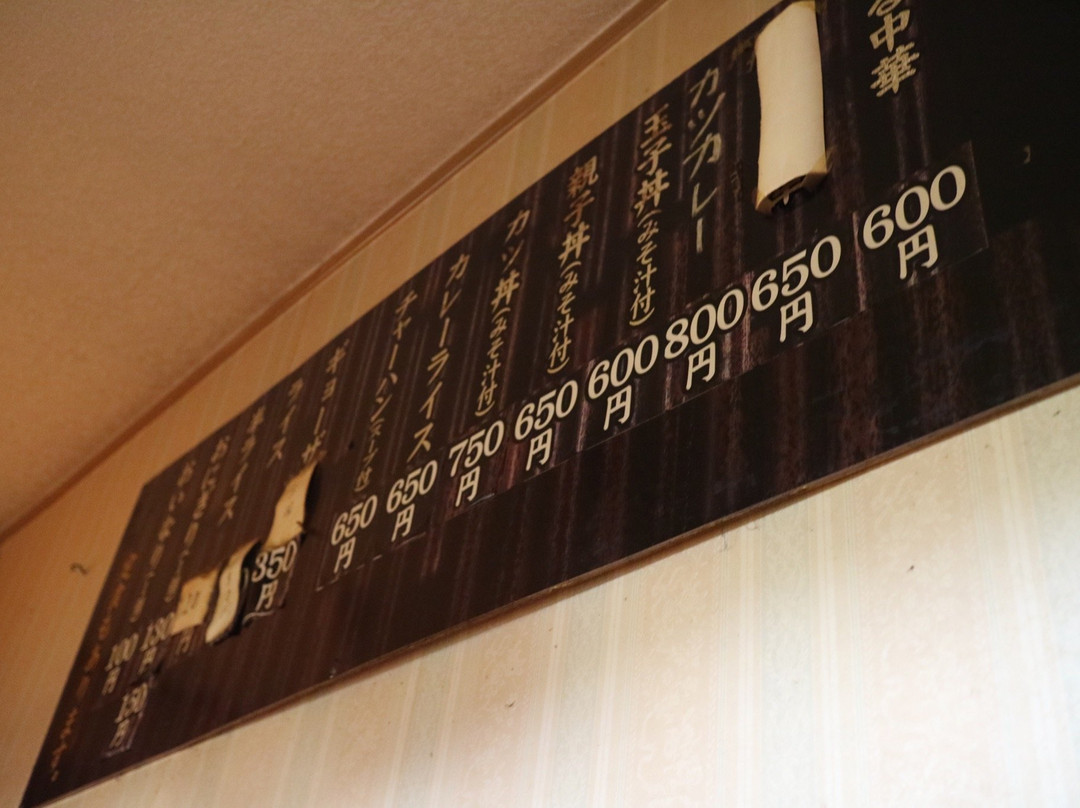 中華 600円
650円
カツカレー 800円
玉子丼(みそ汁付) 600円
親子丼(みそ汁付) 650円
カツ丼(みそ汁付) 750円
カレーライス 650円
チャーハン(スープ付) 650円
ギョーザ 350円
ライス
半ライス
おにぎり
130円
100円
150円